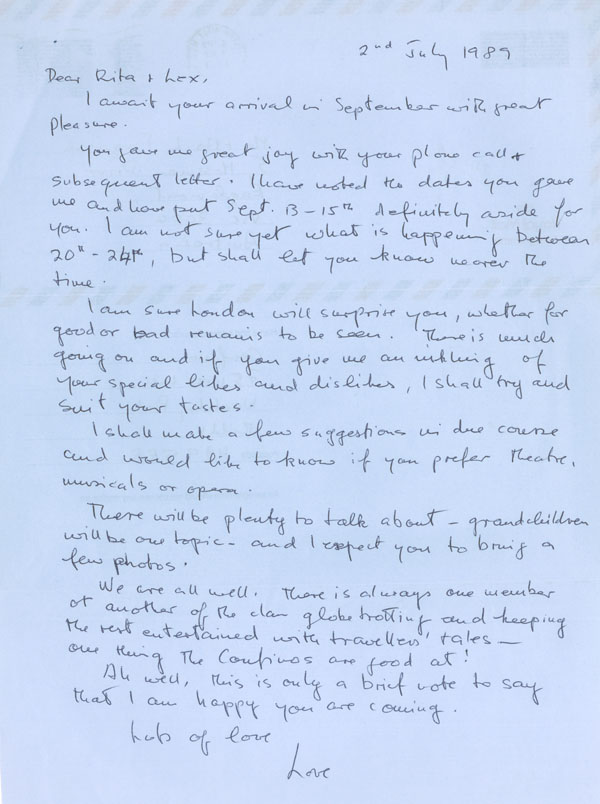 2nd July 1989
Dear Rita & Lex,
I await your arrival in September with great
pleasure.
You gave me great joy with your phone call &
subsequent letter. I have noted the dates you gave
me and have put Sept. 13-15th definitely aside for
you. I am not sure yet what is happening between
20th - 24th, but shall let you know nearer the
time.
I am sure London will surprise you, whether for
good or bad remains to be seen. There is much
going on and if you give me an inkling of
your special likes and dislikes, I shall try and
suit your tastes.
I shall make a few suggestions in due course
and would like to know if you prefer theatre,
musicals or opera.
There will be plenty to talk about - grandchildren
will be one topic - and I expect you to bring a
few photos.
We are all well. There is always one member
or another of the clan globetrotting and keeping
the rest entertained with travellers' tales -
one thing the Confinos are good at!
Ah well, this is only a brief note to say
that I am happy you are coming.
Lots of love
Love